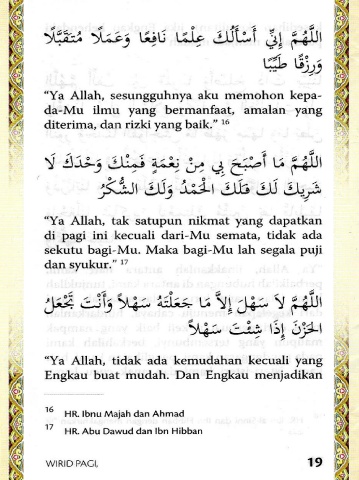 اللَّهُمَّ إِنِّي أَسْأَلُكَ عِلْمًا نَافِعًا وَعَمَلًا مُتَقَبَّلًا
وَرِزْقًا طَيِّبًا
“Ya Allah, sesungguhnya aku memohon kepa-
da-Mu ilmu yang bermanfaat, amalan yang
diterima, dan rizki yang baik.” 16
اللَّهُمَّ مَا أَصْبَحَ بِي مِنْ نِعْمَةٍ فَمِنْكَ وَحْدَكَ لَا
شَرِيكَ لَكَ فَلَكَ الْحَمْدُ وَلَكَ الشُّكْرُ
“Ya Allah, tak satupun nikmat yang dapatkan
di pagi ini kecuali dari-Mu semata, tidak ada
sekutu bagi-Mu. Maka bagi-Mu lah segala puji
dan syukur.” 17
اللَّهُمَّ لاَ سَهْلَ إِلاَّ مَا جَعَلْتَهُ سَهْلاً وَأَنْتَ تَجْعَلُ
الْحَزْنَ إِذَا شِئْتَ سَهْلاً
“Ya Allah, tidak ada kemudahan kecuali yang
Engkau buat mudah. Dan Engkau menjadikan
16 HR. Ibnu Majah dan Ahmad
17 HR. Abu Dawud dan Ibn Hibban
WIRID PAGI, 19